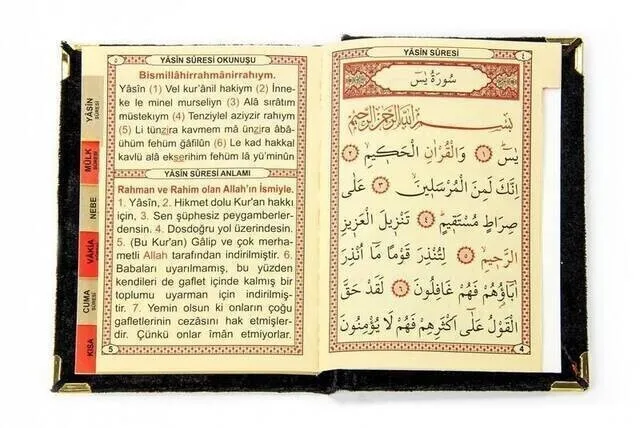 YÂSÎN SÛRESİ
٤
سُورَةُ يٰسٓ
بِسْمِ اللّٰهِ الرَّحْمٰنِ الرَّحِيمِ
يٰسٓ ﴿١﴾ وَالْقُرْاٰنِ الْحَكِيمِ ﴿٢﴾
اِنَّكَ لَمِنَ الْمُرْسَلِينَ ﴿٣﴾ عَلٰى
صِرَاطٍ مُسْتَقِيمٍ ﴿٤﴾ تَنْزِيلَ الْعَزِيزِ
الرَّحِيمِ ﴿٥﴾ لِتُنْذِرَ قَوْمًا مَٓا اُنْذِرَ
اٰبَٓاؤُهُمْ فَهُمْ غَافِلُونَ ﴿٦﴾ لَقَدْ حَقَّ
الْقَوْلُ عَلٰٓى اَكْثَرِهِمْ فَهُمْ لَا يُؤْمِنُونَ
4
٥
YÂSÎN SÛRESİ OKUNUŞU
Bismillâhirrahmânirrahıym.
Yâsîn (1) Vel kur'ânil hakiym (2) İnne-
ke le minel murseliyn (3) Alâ sırâtım
müstekıym (4) Tenziylel aziyzir rahıym
(5) Li tünzira kavmem mâ ünzira âbâ-
ühüm fehüm ğâfilûn (6) Le kad hakkal
kavlü alâ ekserihim fehüm lâ yü'minûn
YÂSÎN SÛRESİ ANLAMI
Rahman ve Rahim olan Allah'ın İsmiyle.
1. Yâsîn, 2. Hikmet dolu Kur'an hakkı
için, 3. Sen şüphesiz peygamberler-
densin. 4. Dosdoğru yol üzerindesin.
5. (Bu Kur'an) Gâlip ve çok merha-
metli Allah tarafından indirilmiştir. 6.
Babaları uyarılmamış, bu yüzden
kendileri de gaflet içinde kalmış bir
toplumu uyarman için indirilmiş-
tir. 7. Yemin olsun ki onların çoğu
gafletlerinin cezâsını hak etmişler-
dir. Çünkü onlar îman etmiyorlar.
5
YÂSÎN
SÛRESİ
MÜLK
SÛRESİ
NEBE
VÂKIA
CUMA
SÛRESİ
KISA